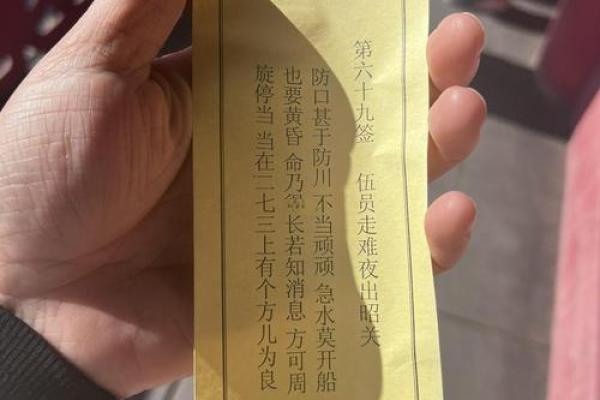 第六十九签 伍员走难夜出昭关
防口甚于防川 不当顽顽 急水莫开船
也要黄昏 命乃 长若知消息 方可周
旋停当 当在二七三上有个方儿为良